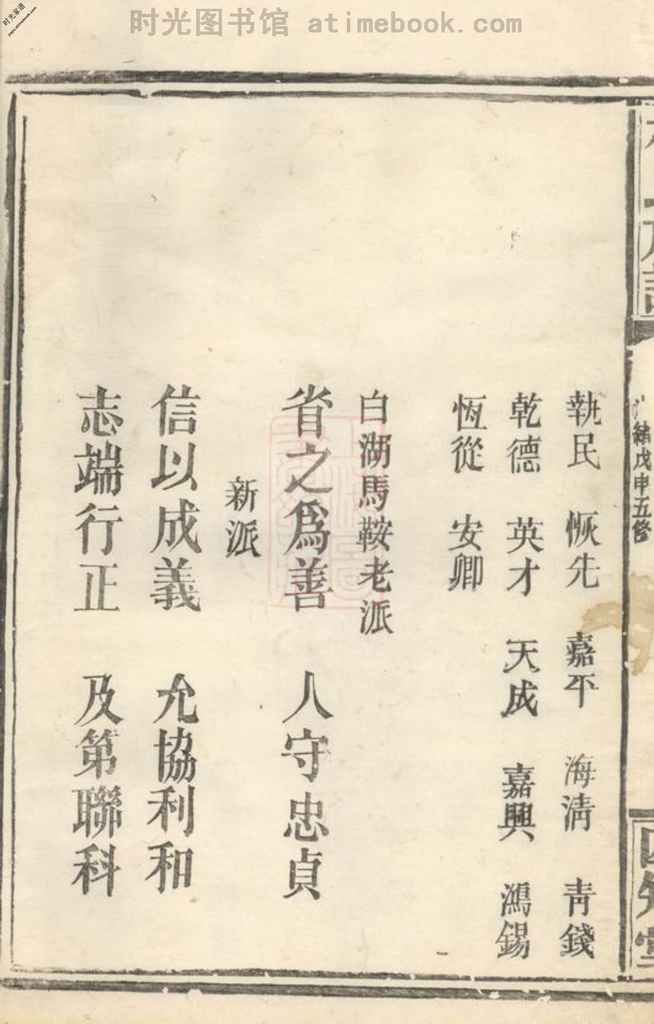 时光图书馆 atimebook.com
时光家谱
族譜
緒戊申五修
四知堂
執民 恢先 嘉平 海清 青錢
乾德 英才 天成 嘉興 鴻錫
恆從 安卿
白湖馬鞍老派
省之為善 人守忠貞
新派
信以成義 允協利和
志端行正 及第聯科